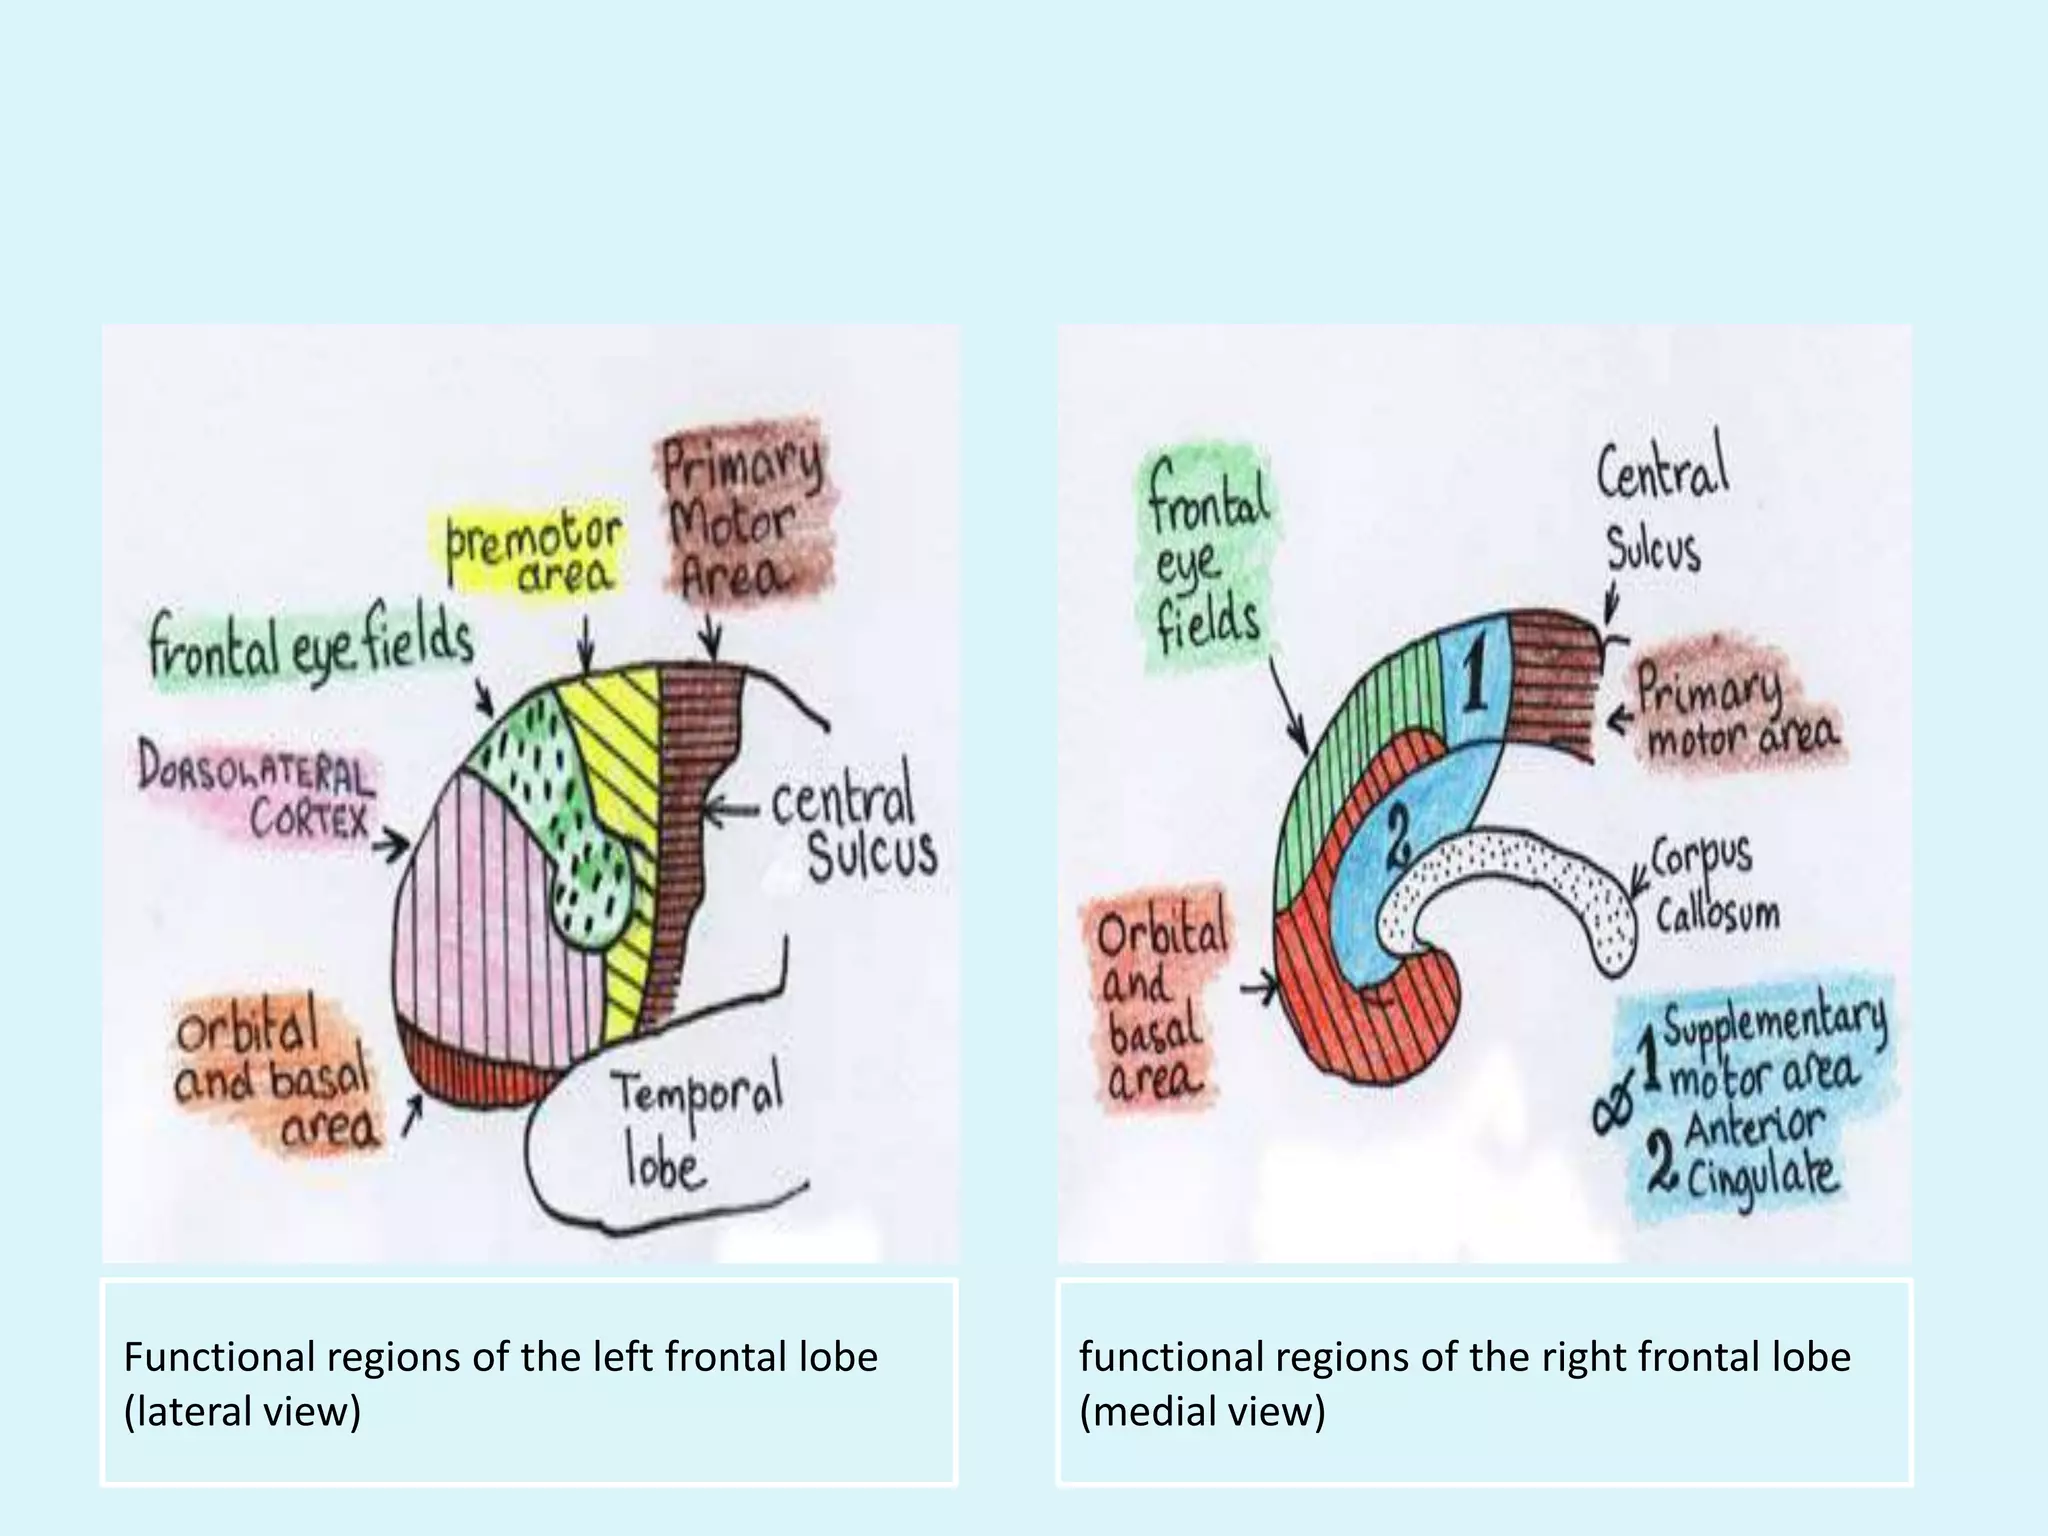 Primary
Motor
Area
premotor
area
frontal eye fields
DORSOLATERAL
CORTEX
central
Sulcus
orbital
and basal
area
Temporal
lobe
Functional regions of the left frontal lobe
(lateral view)
frontal
eye
fields
Central
Sulcus
Primary
motor area
Corpus
Callosum
Orbital
and
basal
area
1 Supplementary
motor area
2 Anterior
Cingulate
1
2
functional regions of the right frontal lobe
(medial view)